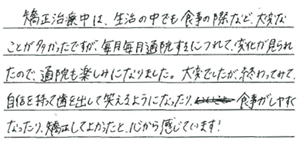 矯正治療中は、生活の中でも食事の際など、大変な
ことが多かったですが、毎月毎月通院するにつれて、変化が見られ
たので、通院も楽しみになりました。大変でしたが、終わってみて、
自信を持って歯を出して笑えるようになったり、食事がしやすく
なったり、矯正してよかったと、心から感じています!